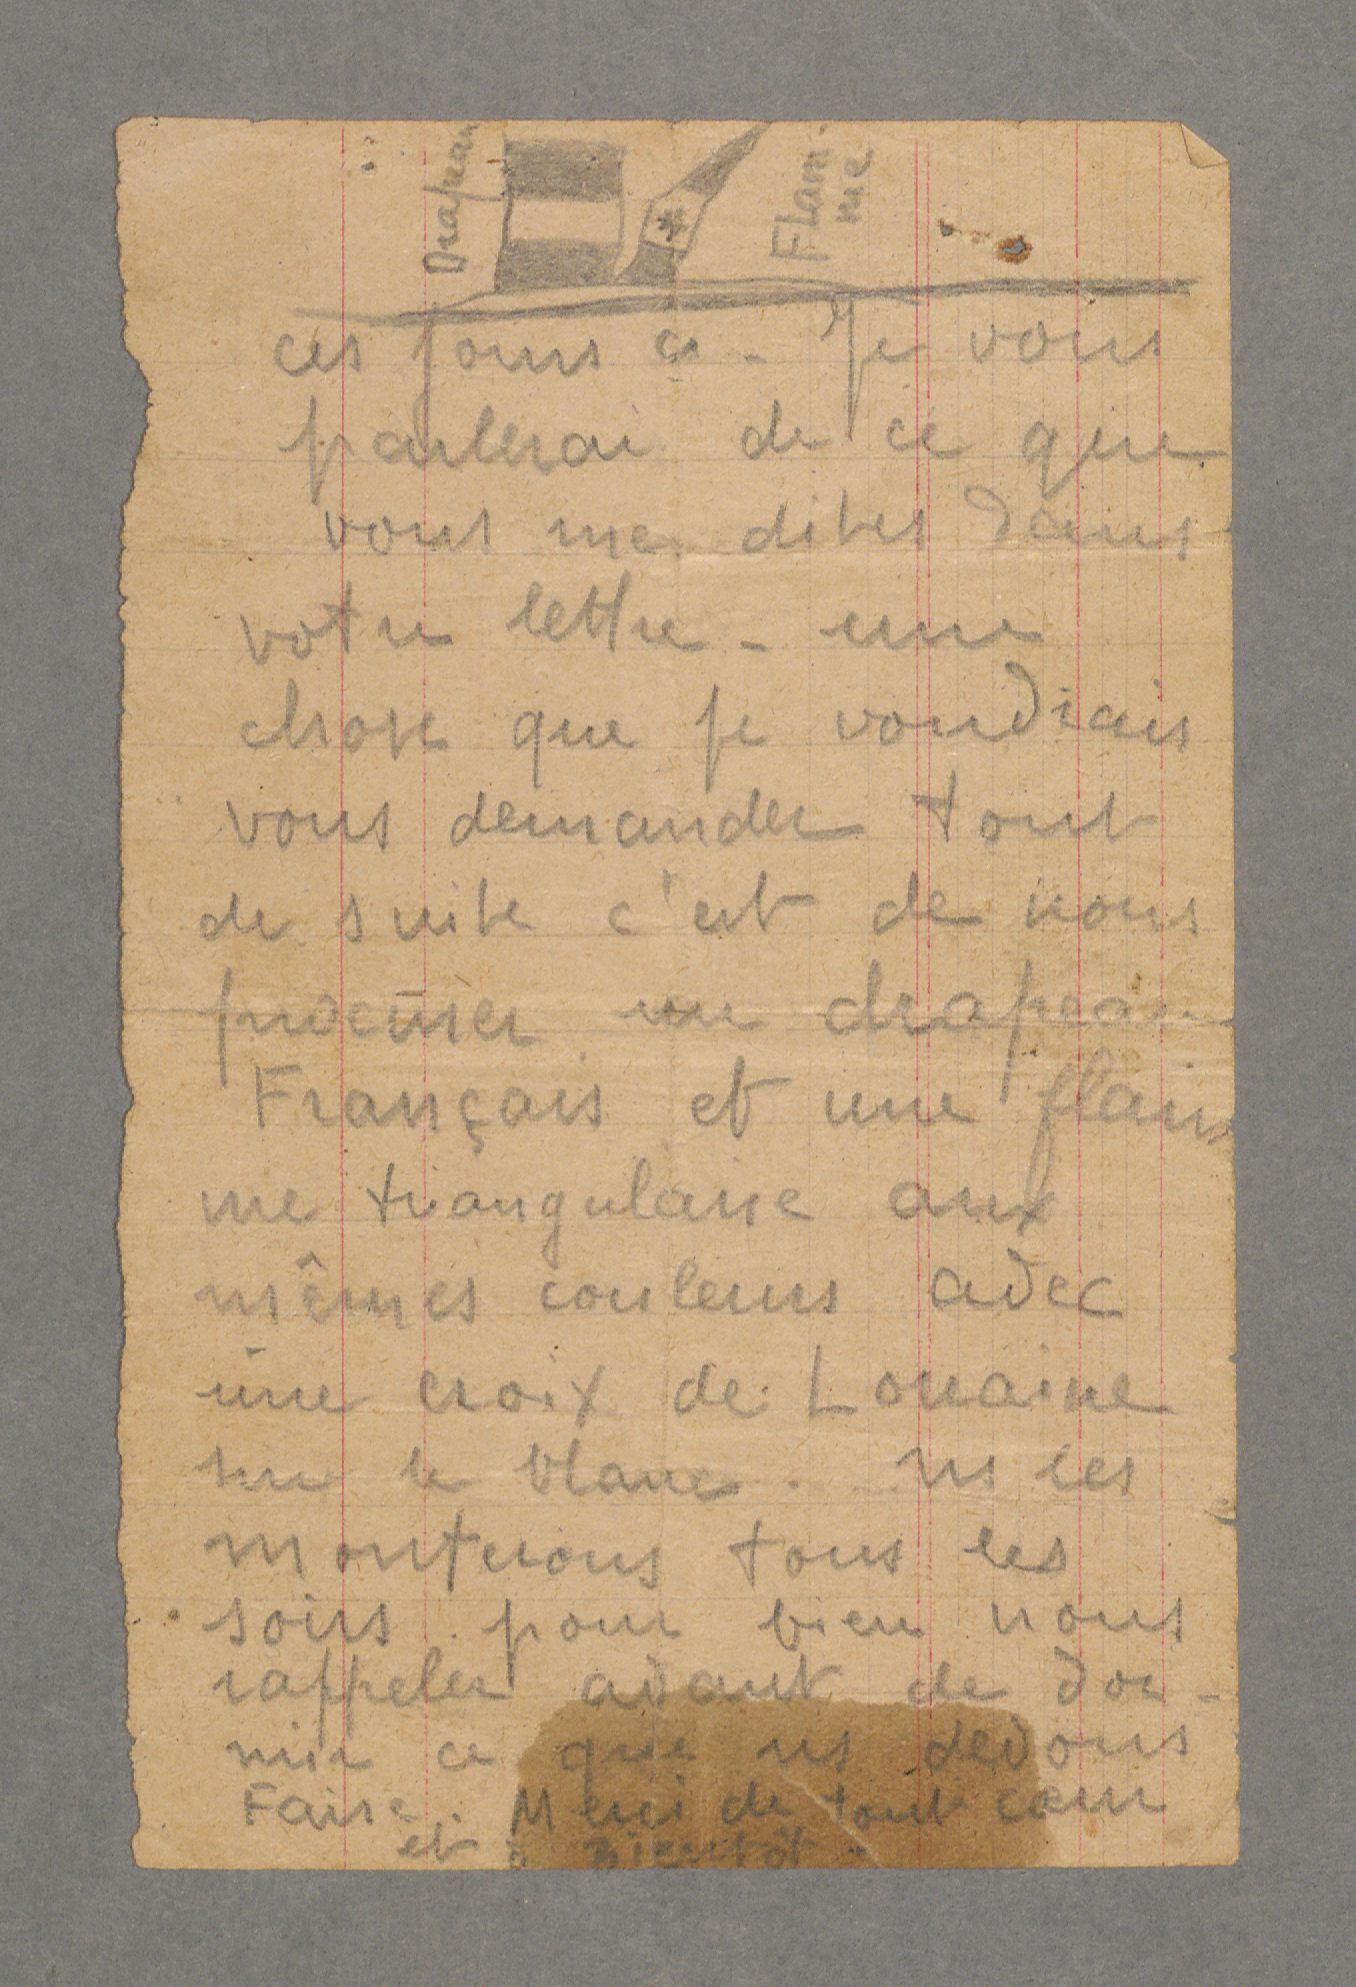 Drapeau
Flam-
me
ces jours ci - Je vous
parlerai de ce que
vous me dites dans
votre lettre - une
chose que je voudrais
vous demander tout
de suite c'est de nous
procurer un drapeau
Français et une flam
me triangulaire aux
mêmes couleurs avec
une croix de Lorraine
sur le blanc. ns les
monterons tous les
soirs pour bien nous
rappeler avant de dor-
mir ce que ns devons
Faire. Merci de tout cœur
et à Bientôt.